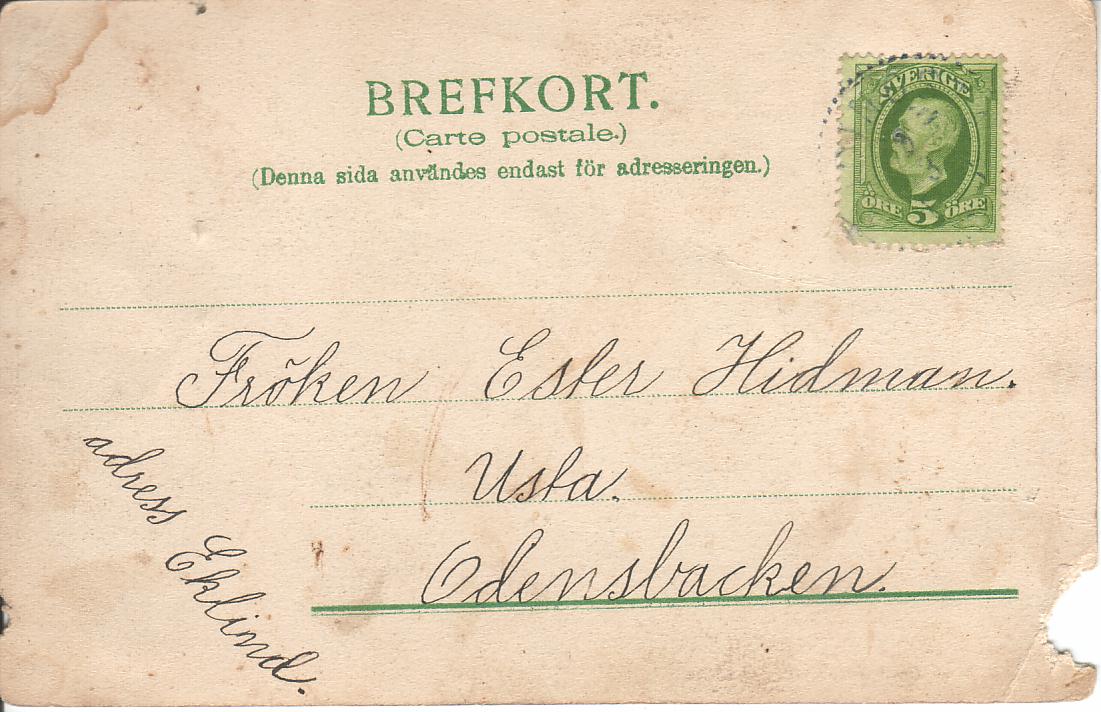 BREFKORT.
(Carte postale.)
(Denna sida användes endast för adresseringen.)
SVERIGE
ÖRE 5 ÖRE
Fröken Ester Hidman.
Usta.
Odensbacken.
adress Eklind.